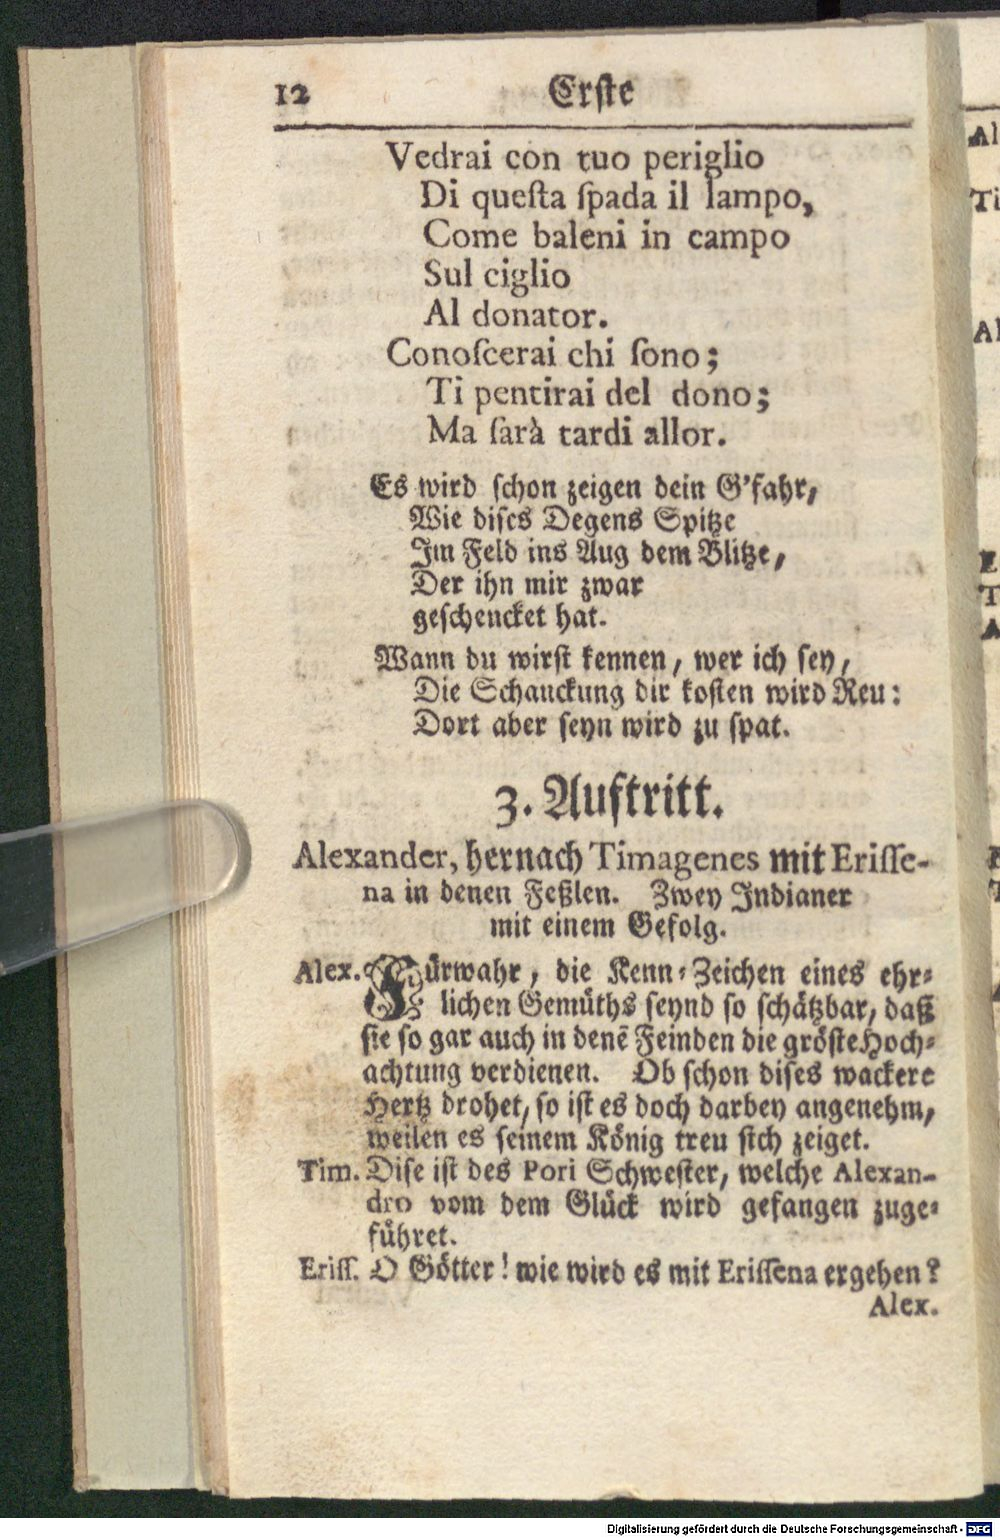 12 Erste
Vedrai con tuo periglio
Di queſta ſpada il lampo,
Come baleni in campo
Sul ciglio
Al donator.
Conoſcerai chi ſono;
Ti pentirai del dono;
Ma ſarà tardi allor.
Es wird ſchon zeigen dein G'fahr,
Wie diſes Degens Spitze
Im Feld ins Aug dem Blitze,
Der ihn mir zwar
geſchencket hat.
Wann du wirſt kennen, wer ich ſey,
Die Schanckung dir koſten wird Reu:
Dort aber ſeyn wird zu ſpat.
3. Auftritt.
Alexander, hernach Timagenes mit Eriſſe-
na in denen Feßlen. Zwey Indianer
mit einem Gefolg.
Alex. Fürwahr, die Kenn-Zeichen eines ehr-
lichen Gemüths ſeynd ſo ſchätzbar, daß
ſie ſo gar auch in denē Feinden die gröſte Hoch-
achtung verdienen. Ob ſchon diſes wackere
Hertz drohet, ſo iſt es doch darbey angenehm,
weilen es ſeinem König treu ſich zeiget.
Tim. Diſe iſt des Pori Schweſter, welche Alexan-
dro vom dem Glück wird gefangen zuge-
führet.
Eriſſ. O Götter! wie wird es mit Eriſſena ergehen?
Alex.
Al
Ti
Al
E
T
A
Digitalisierung gefördert durch die Deutsche Forschungsgemeinschaft - DFG